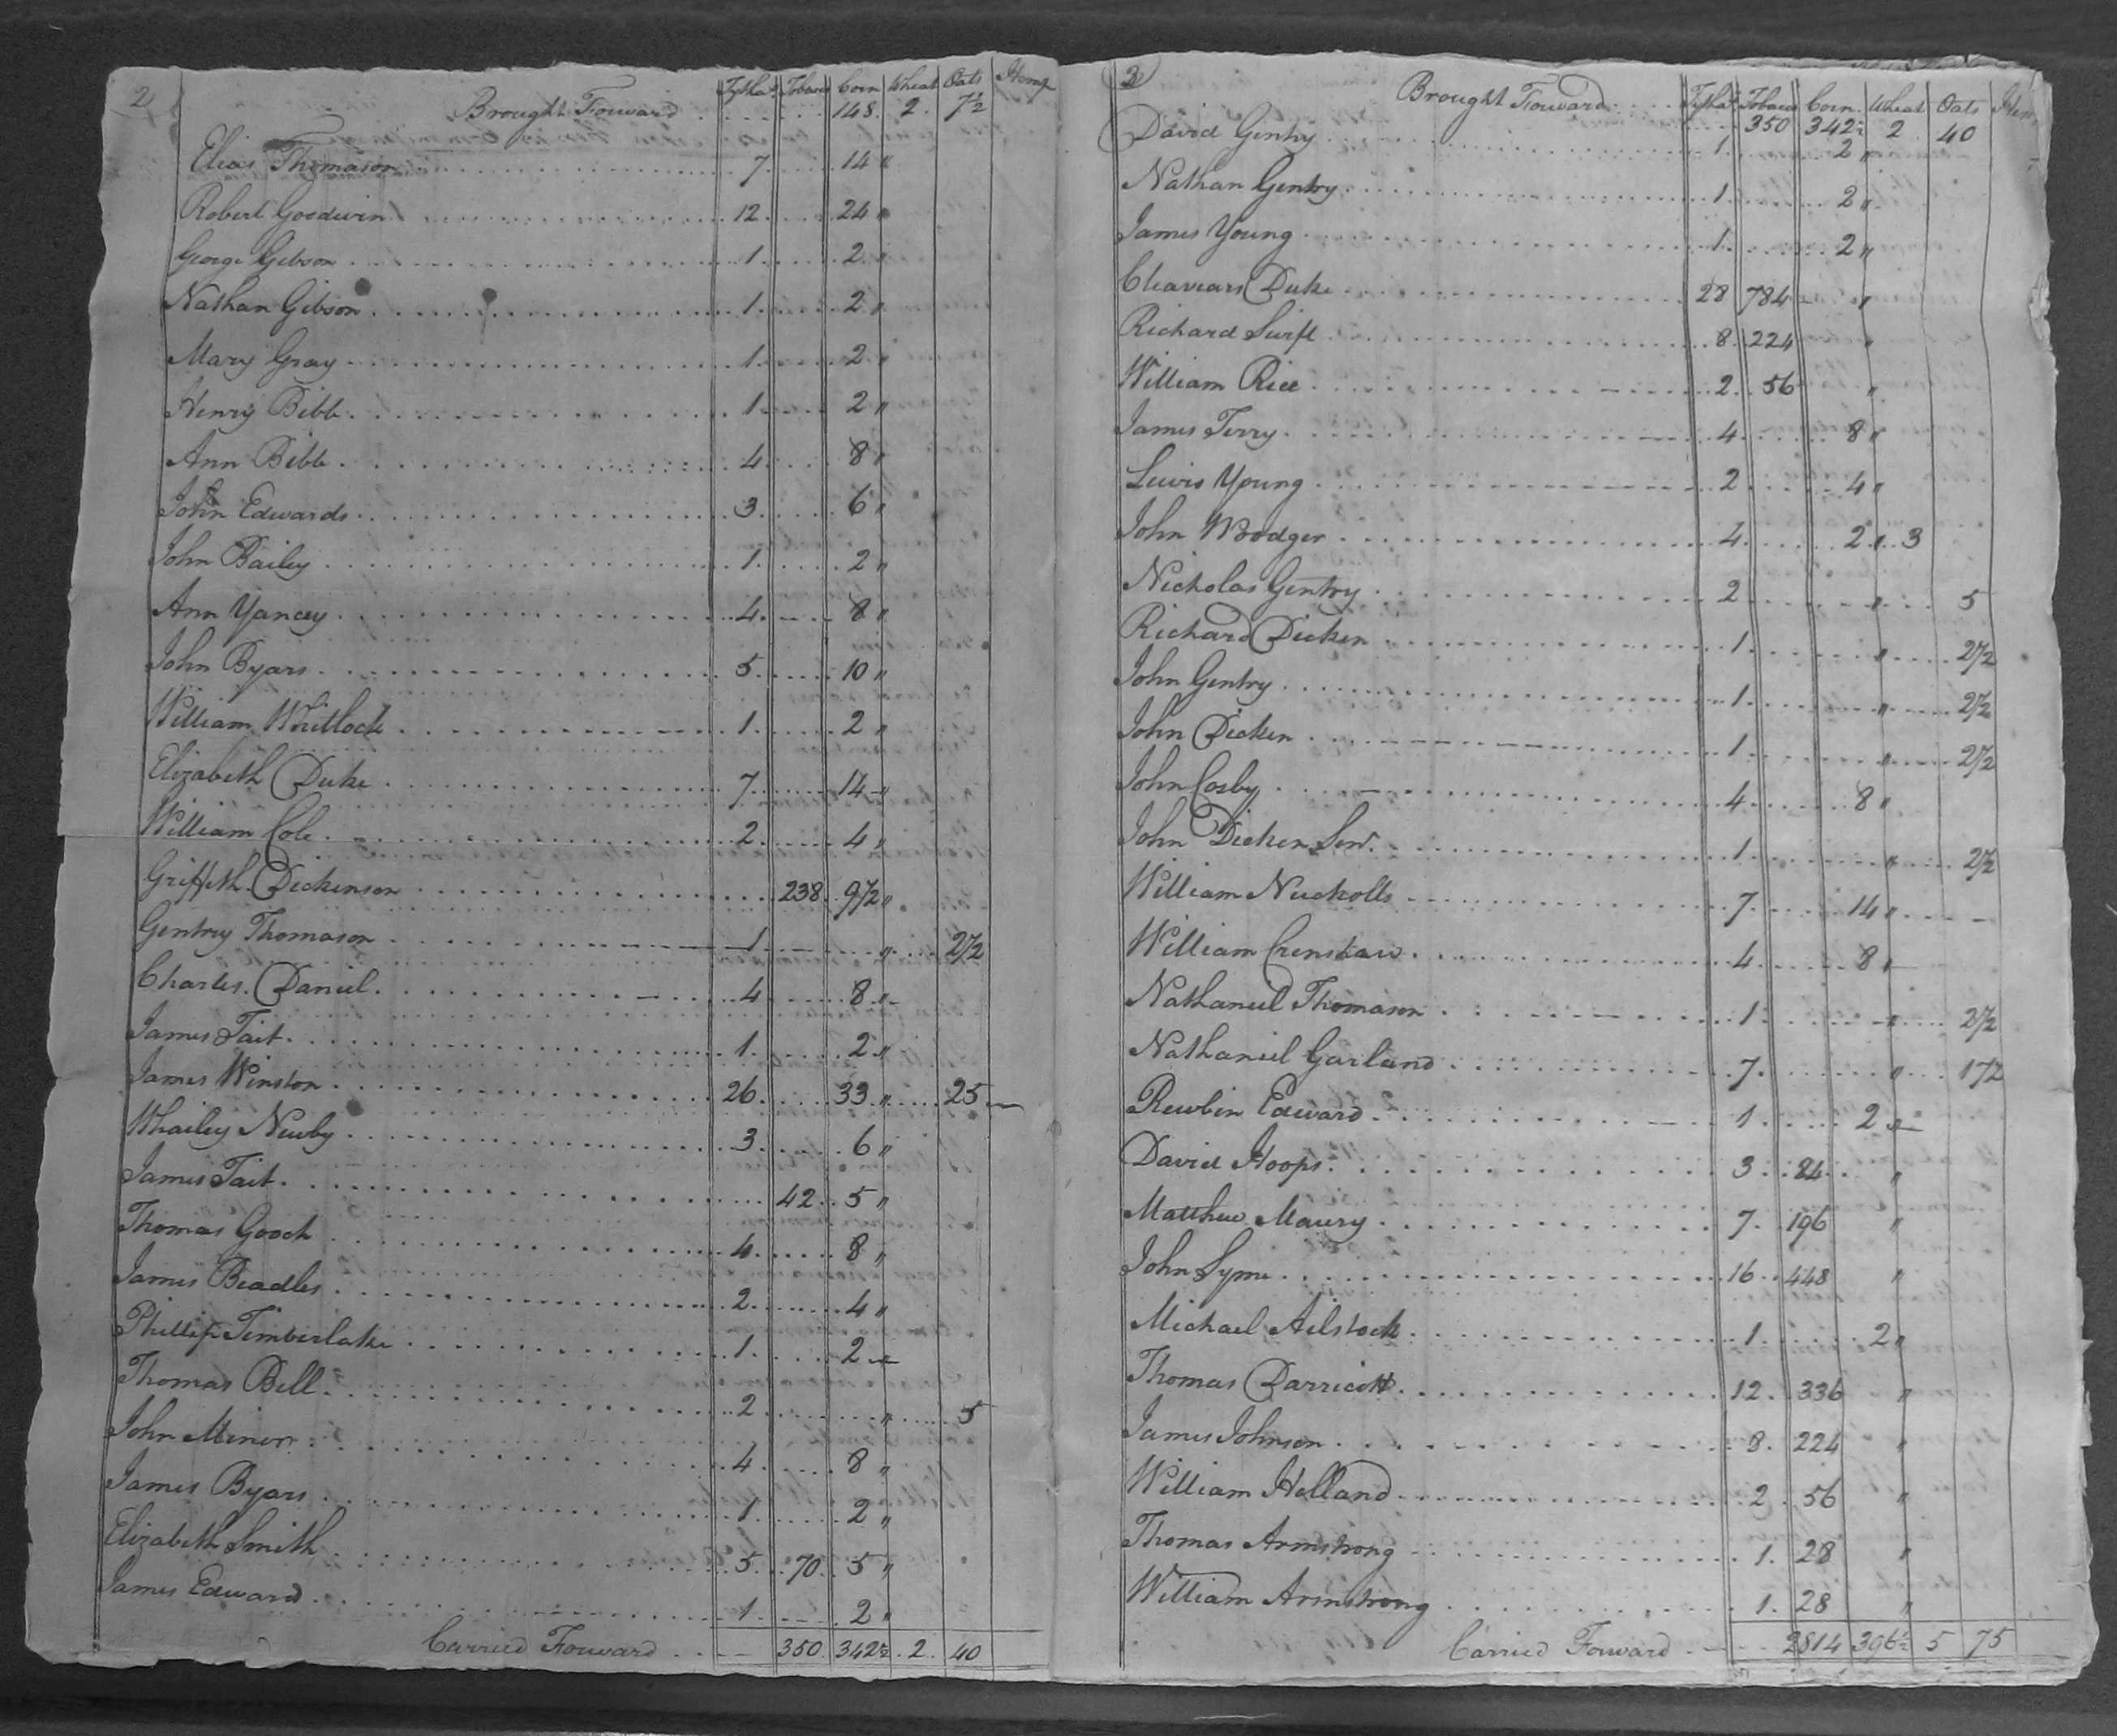 2 Brought Forward Tytha^s Tobacco Corn Wheat Oats Hemp
148 2 7½
Elias Thomason 7 14 "
Robert Goodwin 12 24 "
George Gibson 1 2 "
Nathan Gibson 1 2 "
Mary Gray 1 2 "
Henry Bibb 1 2 "
Ann Bibb 4 8 "
John Edwards 3 6 "
John Bailey 1 2 "
Ann Yancey 4 8 "
John Byars 5 10 "
William Whitlock 1 2 "
Elizabeth Duke 7 14 "
William Cole 2 4 "
Griffith Dickenson 238 9½ "
Gentry Thomason 1 " 2½
Charles Daniel 4 8 "
James Tait 1 2 "
James Winston 26 33 " 25
Whailey Newby 3 6 "
James Tait 42 5 "
Thomas Gooch 4 8 "
James Beadles 2 4 "
Phillip Timberlake 1 2 "
Thomas Bell 2 " 5
John Minor 4 8 "
James Byars 1 2 "
Elizabeth Smith 5 70 5 "
James Edward 1 2 "
Carried Forward 350 342½ 2 40
3 Brought Forward Tytha^s Tobacco Corn Wheat Oats
350 342½ 2 40
David Gentry 1 2 "
Nathan Gentry 1 2 "
James Young 1 2 "
Cleavears Duke 28 784 "
Richard Swift 8 224 "
William Rice 2 56 "
James Terry 4 8 "
Lewis Young 2 4 "
John Wodger 4 2 " 3
Nicholas Gentry 2 " 5
Richard Dicken 1 " 2½
John Gentry 1 " 2½
John Dicken 1 " 2½
John Cosby 4 8 "
John Dicken Senr. 1 " 2½
William Nuckolls 7 14 "
William Crenshaw 4 8 "
Nathaniel Thomason 1 " 2½
Nathaniel Garland 7 " 17½
Rewbin Edward 1 2 "
David Hoops 3 84 "
Matthew Maury 7 196 "
John Syme 16 448 "
Michael Ailstock 1 2 "
Thomas Darricott 12 336 "
James Johnson 8 224 "
William Holland 2 56 "
Thomas Armstrong 1 28 "
William Armstrong 1 28 "
Carried Forward 2814 396½ 5 75